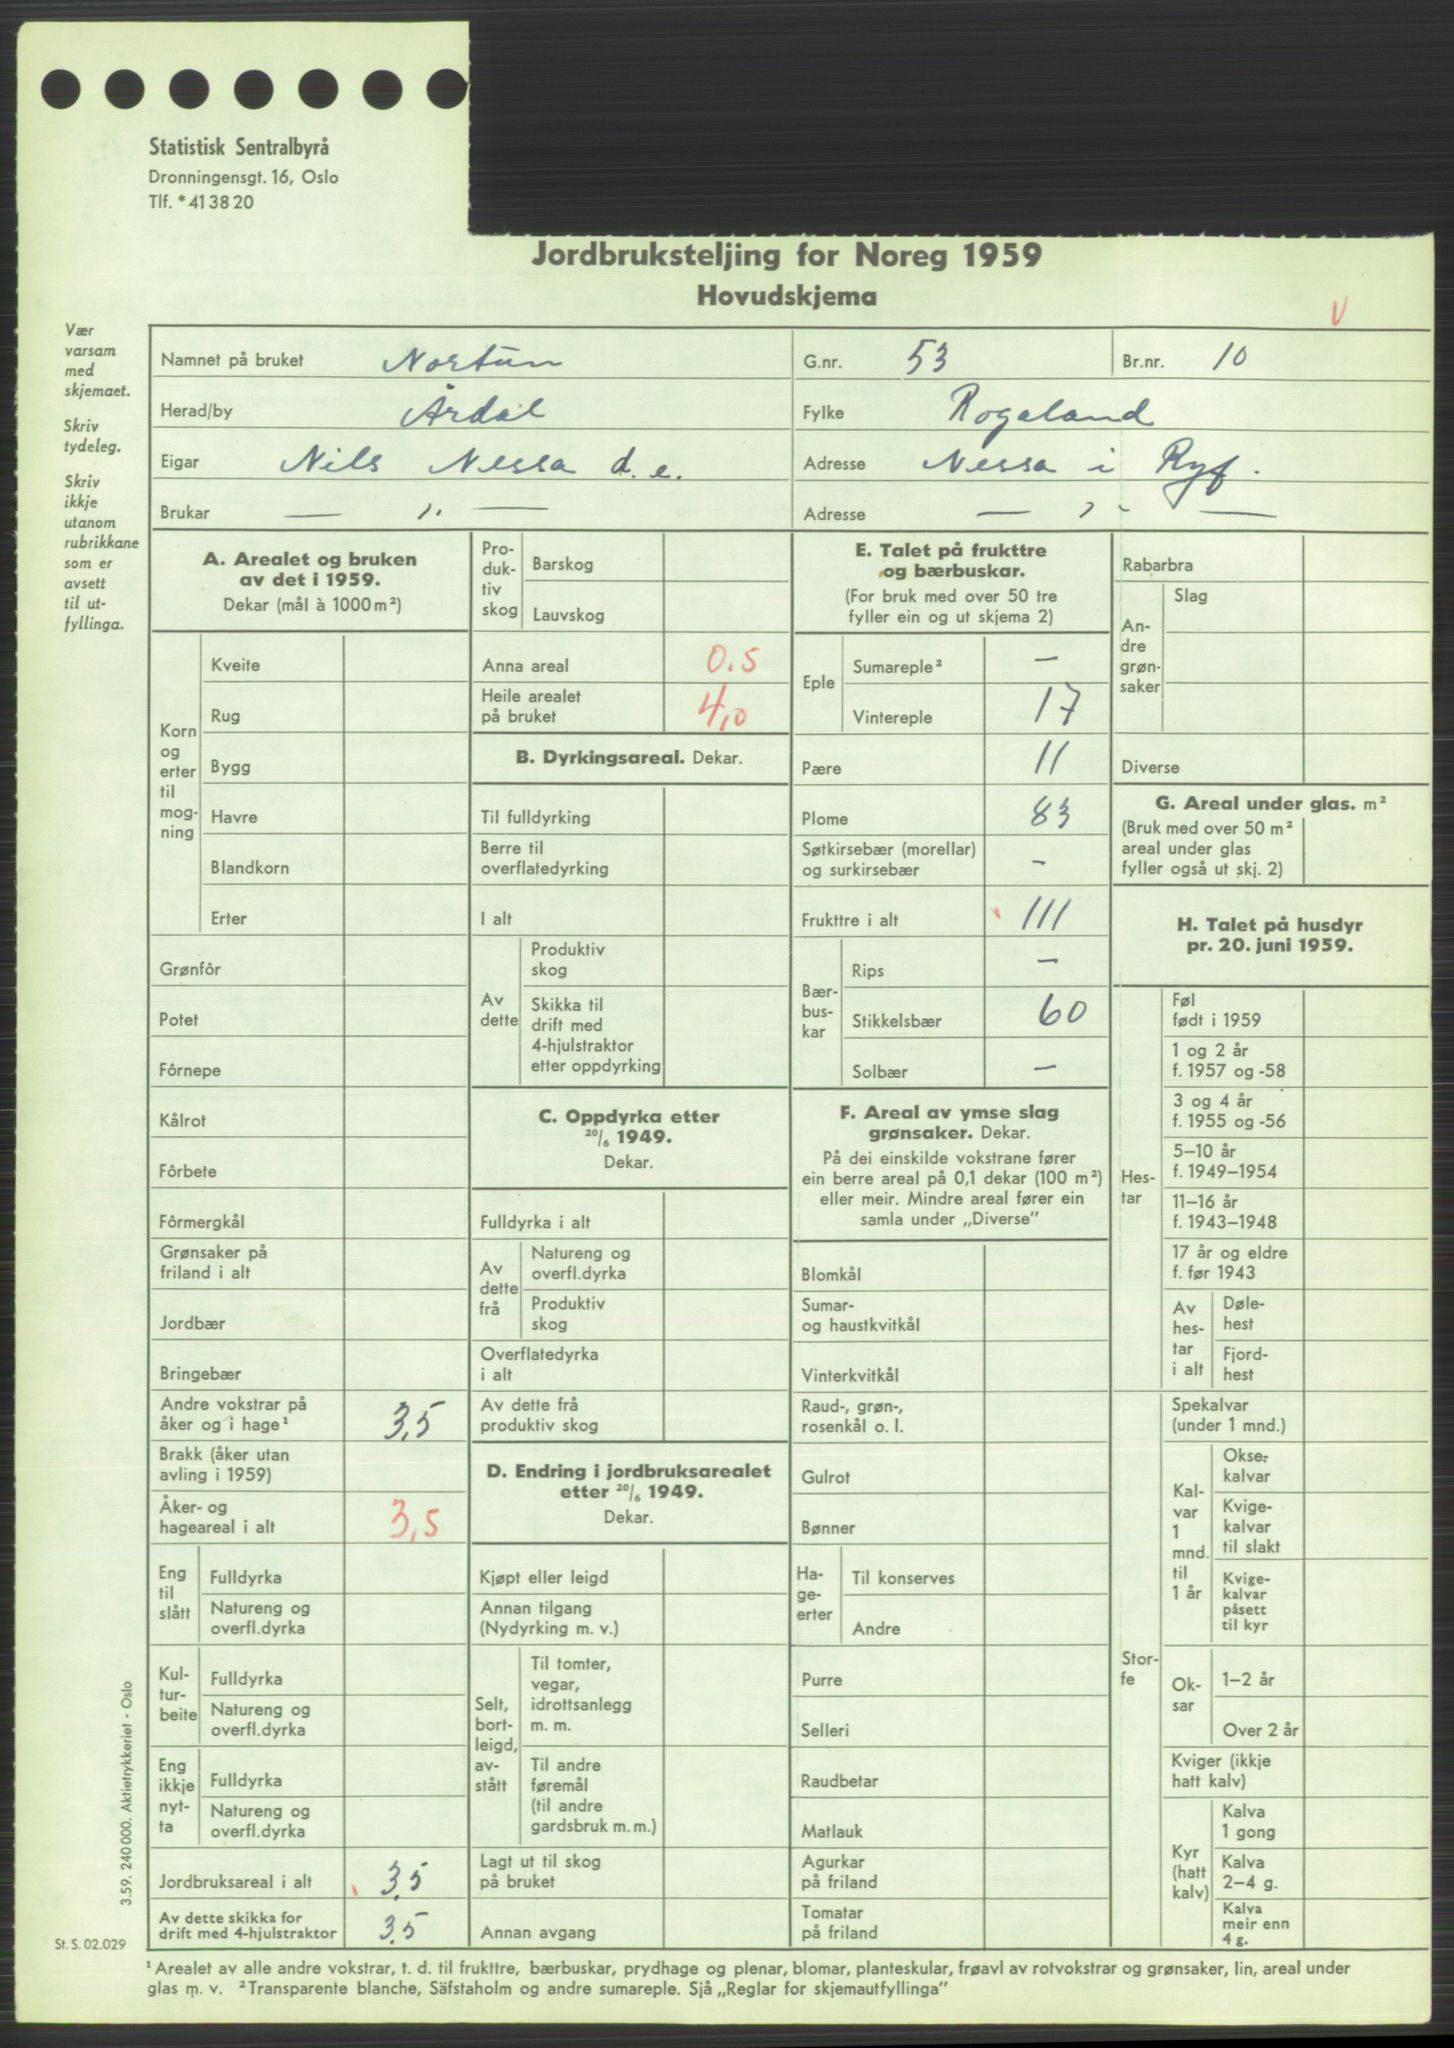 Statistisk Sentralbyrå
Dronningensgt. 16, Oslo
Tlf. *41 38 20
Jordbruksteljing for Noreg 1959
Hovudskjema
V
Vær
varsam
med
skjemaet.
Skriv
tydeleg.
Skriv
ikkje
utanom
rubrikkane
som er
avsett
til ut-
fyllinga.
Namnet på bruket Nortun G.nr. 53 Br.nr. 10
Herad/by Årdal Fylke Rogaland
Eigar Nils Nessa d.e. Adresse Nessa i Ryf.
Brukar — ,,. — Adresse — ,,- —
A. Arealet og bruken
av det i 1959.
Dekar (mål à 1000 m²)
Korn
og
erter
til
mog-
ning
Kveite
Rug
Bygg
Havre
Blandkorn
Erter
Grønfôr
Potet
Fôrnepe
Kålrot
Fôrbete
Fôrmergkål
Grønsaker på
friland i alt
Jordbær
Bringebær
Andre vokstrar på
åker og i hage¹ 3,5
Brakk (åker utan
avling i 1959)
Åker- og
hageareal i alt 3,5
Eng
til
slått
Fulldyrka
Natureng og
overfl.dyrka
Kul-
tur-
beite
Fulldyrka
Natureng og
overfl.dyrka
Eng
ikkje
nyt-
ta
Fulldyrka
Natureng og
overfl.dyrka
Jordbruksareal i alt 3,5
Av dette skikka for
drift med 4-hjulstraktor 3,5
Pro-
duk-
tiv
skog
Barskog
Lauvskog
Anna areal 0.5
Heile arealet
på bruket 4,0
B. Dyrkingsareal. Dekar.
Til fulldyrking
Berre til
overflatedyrking
I alt
Av
dette
Produktiv
skog
Skikka til
drift med
4-hjulstraktor
etter oppdyrking
C. Oppdyrka etter
20/6 1949.
Dekar.
Fulldyrka i alt
Av
dette
frå
Natureng og
overfl.dyrka
Produktiv
skog
Overflatedyrka
i alt
Av dette frå
produktiv skog
D. Endring i jordbruksarealet
etter 20/6 1949.
Dekar.
Kjøpt eller leigd
Annan tilgang
(Nydyrking m. v.)
Selt,
bort-
leigd,
av-
stått
Til tomter,
vegar,
idrottsanlegg
m. m.
Til andre
føremål
(til andre
gardsbruk m. m.)
Lagt ut til skog
på bruket
Annan avgang
E. Talet på frukttre
og bærbuskar.
(For bruk med over 50 tre
fyller ein og ut skjema 2)
Eple
Sumareple² —
Vintereple 17
Pære 11
Plome 83
Søtkirsebær (morellar)
og surkirsebær –
Frukttre i alt 111
Bær-
bus-
kar
Rips —
Stikkelsbær 60
Solbær —
F. Areal av ymse slag
grønsaker. Dekar.
På dei einskilde vokstrane fører
ein berre areal på 0,1 dekar (100 m²)
eller meir. Mindre areal fører ein
samla under „Diverse”
Blomkål
Sumar-
og haustkvitkål
Vinterkvitkål
Raud-, grøn-,
rosenkål o. l.
Gulrot
Bønner
Ha-
ge-
erter
Til konserves
Andre
Purre
Selleri
Raudbetar
Matlauk
Agurkar
på friland
Tomatar
på friland
Rabarbra
An-
dre
grøn-
saker
Slag
Diverse
G. Areal under glas. m²
(Bruk med over 50 m²
areal under glas
fyller også ut skj. 2)
H. Talet på husdyr
pr. 20. juni 1959.
Hes-
tar
Føl
født i 1959
1 og 2 år
f. 1957 og -58
3 og 4 år
f. 1955 og -56
5–10 år
f. 1949–1954
11–16 år
f. 1943–1948
17 år og eldre
f. før 1943
Av
hes-
tar
i alt
Døle-
hest
Fjord-
hest
Stor-
fe
Spekalvar
(under 1 mnd.)
Kal-
var
1
mnd.
til
1 år
Okse-
kalvar
Kvige-
kalvar
til slakt
Kvige-
kalvar
påsett
til kyr
Ok-
sar
1–2 år
Over 2 år
Kviger (ikkje
hatt kalv)
Kyr
(hatt
kalv)
Kalva
1 gong
Kalva
2–4 g.
Kalva
meir enn
4 g.
3.59. 240 000. Aktietrykkeriet - Oslo
St. S. 02.029
¹ Arealet av alle andre vokstrar, t. d. til frukttre, bærbuskar, prydhage og plenar, blomar, planteskular, frøavl av rotvokstrar og grønsaker, lin, areal under
glas m. v. ² Transparente blanche, Säfstaholm og andre sumareple. Sjå „Reglar for skjemautfyllinga”